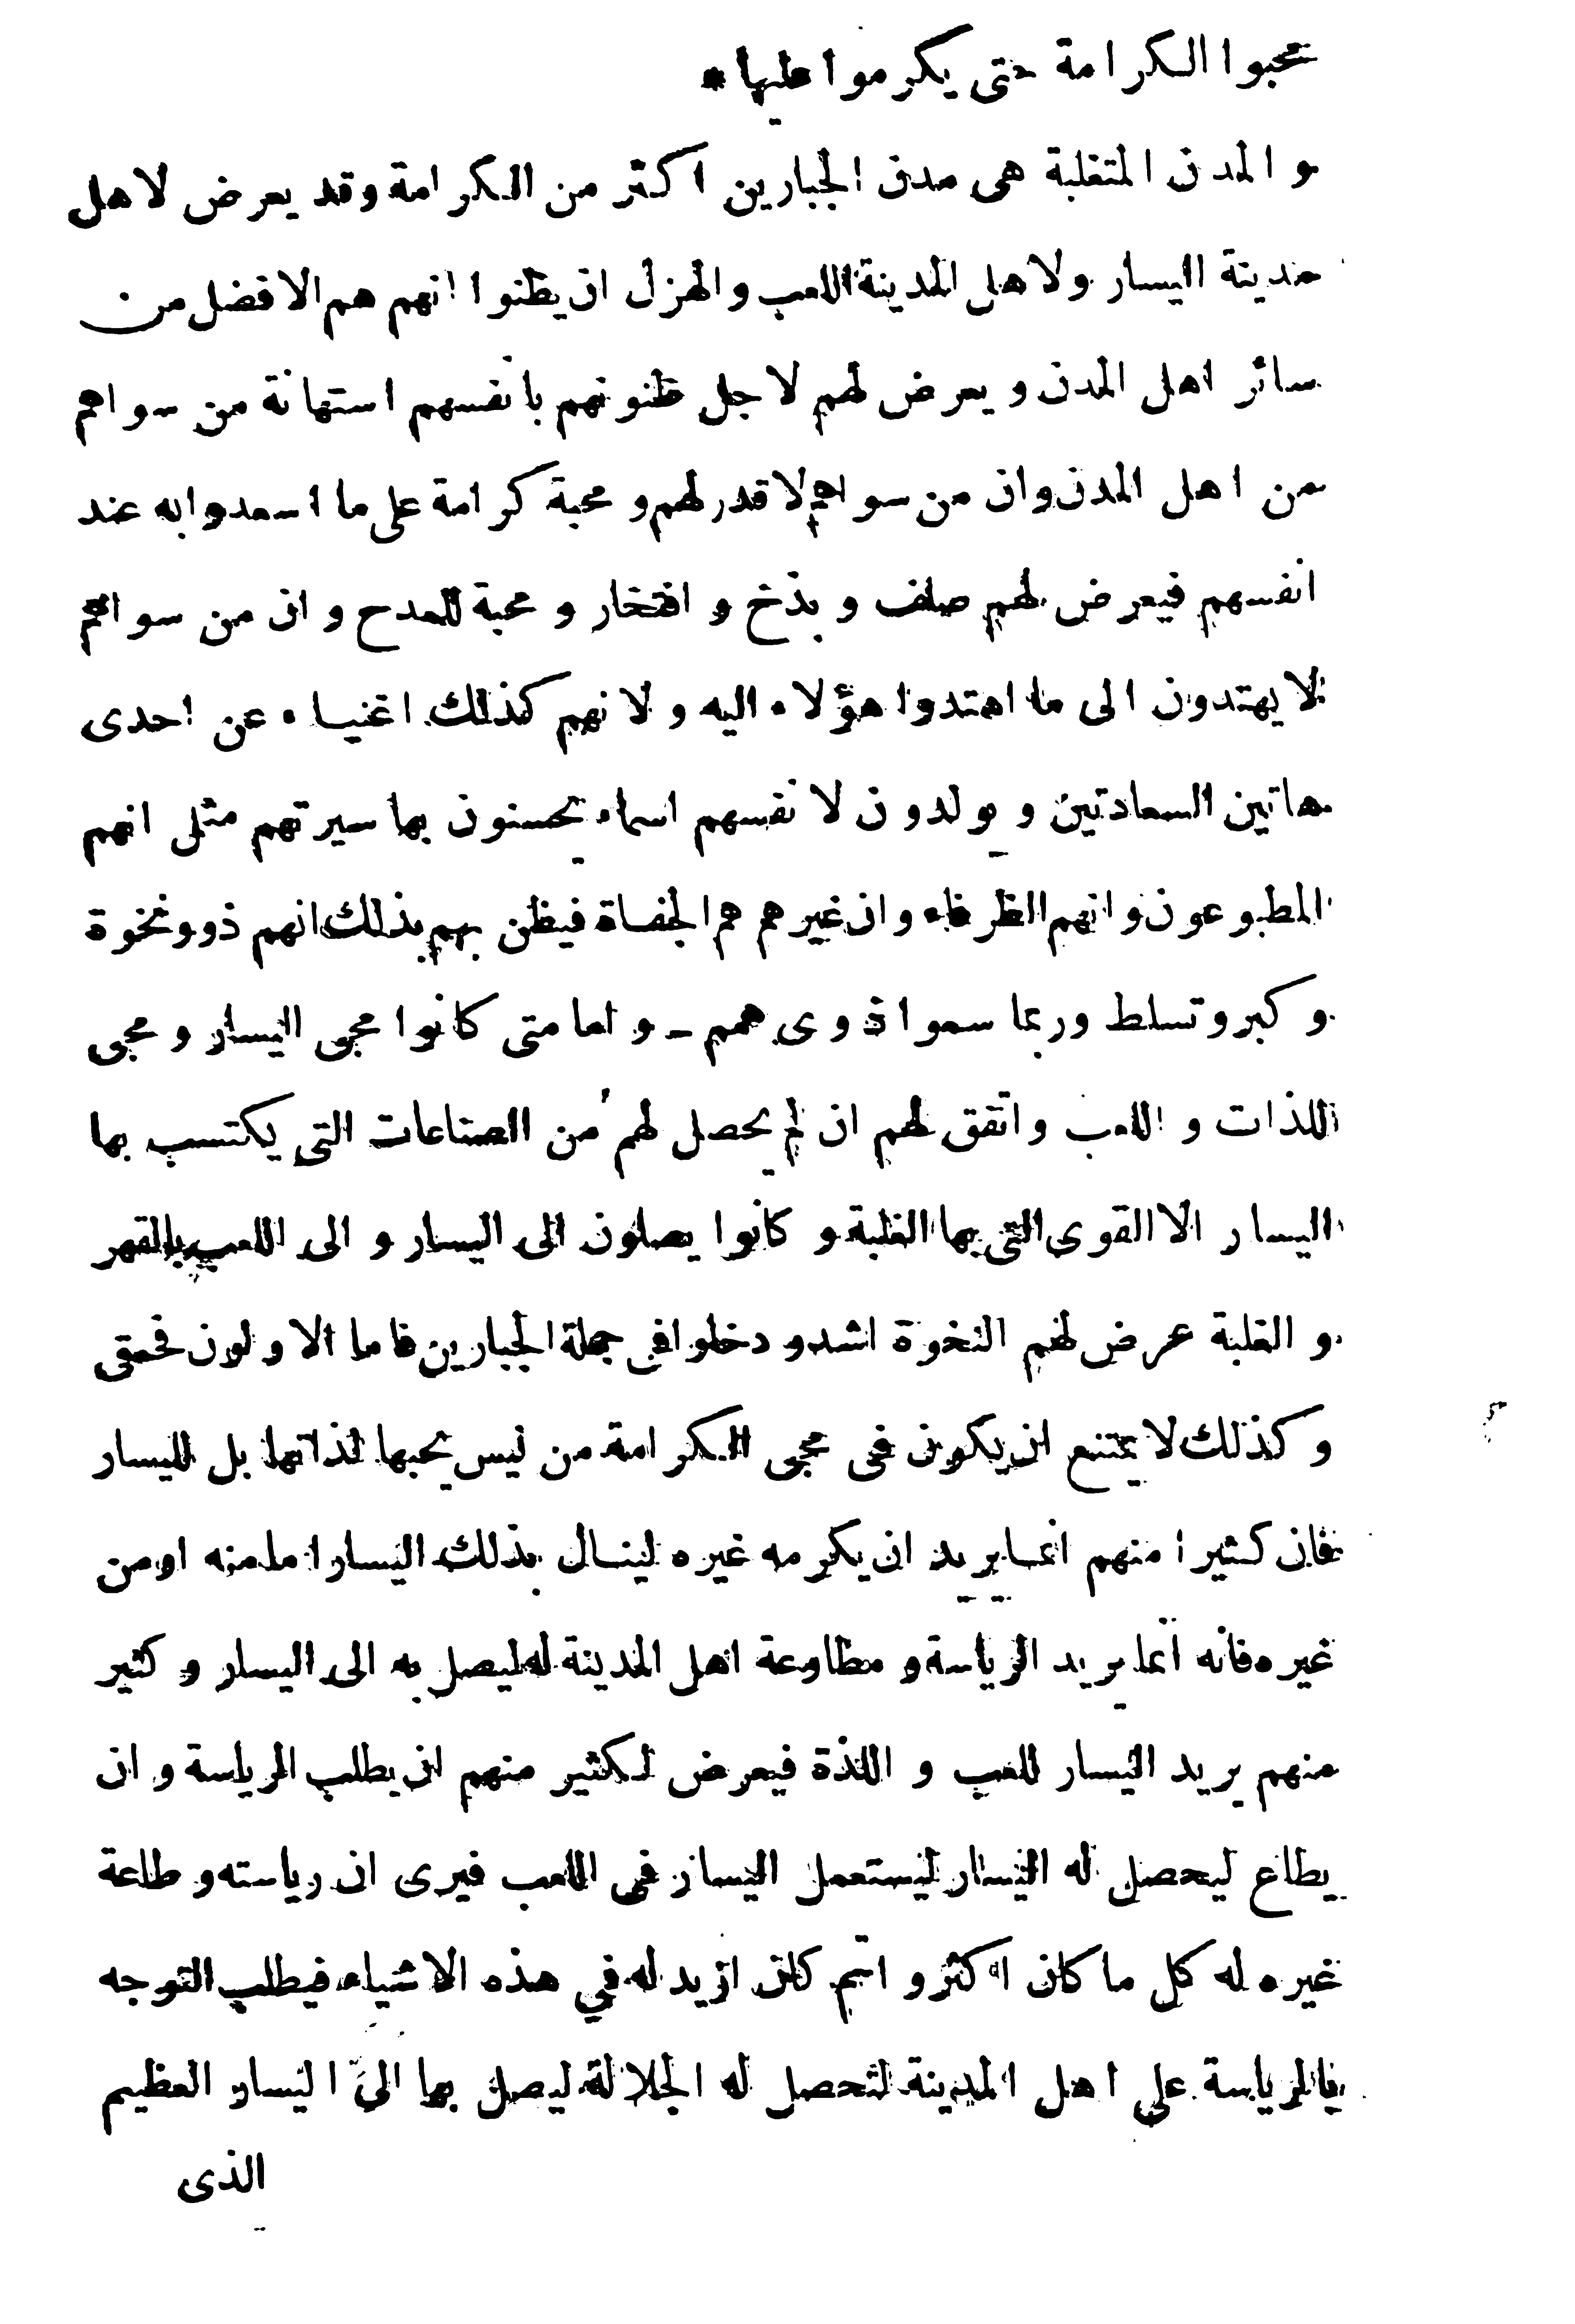 محبوا الكرامة حتى يكرموا عليها *
و المدن المتغلبة هى مدن الجبارين اكثر من الكرامة وقد يعرض لاهل
مدينة اليسار ولاهل المدينة اللعب و الهزل ان يظنوا انهم هم الافضل من
سائر اهل المدن و يعرض لهم لاجل ظنونهم بانفسهم استهانة من سواهم
من اهل المدن وان من سواهم لا قدر لهم و محبة كرامة على ما اسعدوا به عند
انفسهم فيعرض لهم صلف و بذخ و افتخار و محبة للمدح و ان من سواهم
لا يهتدون الى ما اهتدوا هؤلاء اليه و لانهم كذلك اغنياء عن احدى
هاتين السعادتين و يولدون لانفسهم اسماء يحسنون بها سيرتهم مثل انهم
المطبوعون و انهم الظرفاء و ان غيرهم هم الجفاة فيظن بهم بذلك انهم ذوو نخوة
و كبر و تسلط و ربما سموا ذوى همم ـ و اما متى كانوا محبى اليسار و محبى
اللذات و اللعب و اتفق لهم ان لم يحصل لهم من الصناعات التى يكتسب بها
اليسار الا القوى التى بها الغلبة و كانوا يصلون الى اليسار و الى اللعب بالقهر
و الغلبة عرض لهم النخوة اشد و دخلوا فى جملة الجبارين فاما الاولون فحمقى
و كذلك لا يمتنع ان يكون فى محبى الكرامة من ليس يحبها لذاتها بل لليسار
فان كثيرا منهم انما يريد ان يكرمه غيره لينال بذلك اليسار اما منه او من
غيره فانه انما يريد الرياسة و مطاوعة اهل المدينة له ليصل به الى اليسار و كثير
منهم يريد اليسار للعب و اللذة فيعرض لكثير منهم ان يطلب الرياسة و ان
يطاع ليحصل له اليسار ليستعمل اليسار فى اللعب فيرى ان رياسته و طاعة
غيره له كل ما كان اكثر و اتم كان ازيد له في هذه الاشياء فيطلب التوحه
بالرياسة على اهل المدينة لتحصل له الجلالة ليصل بها الى اليسار العظيم
الذى